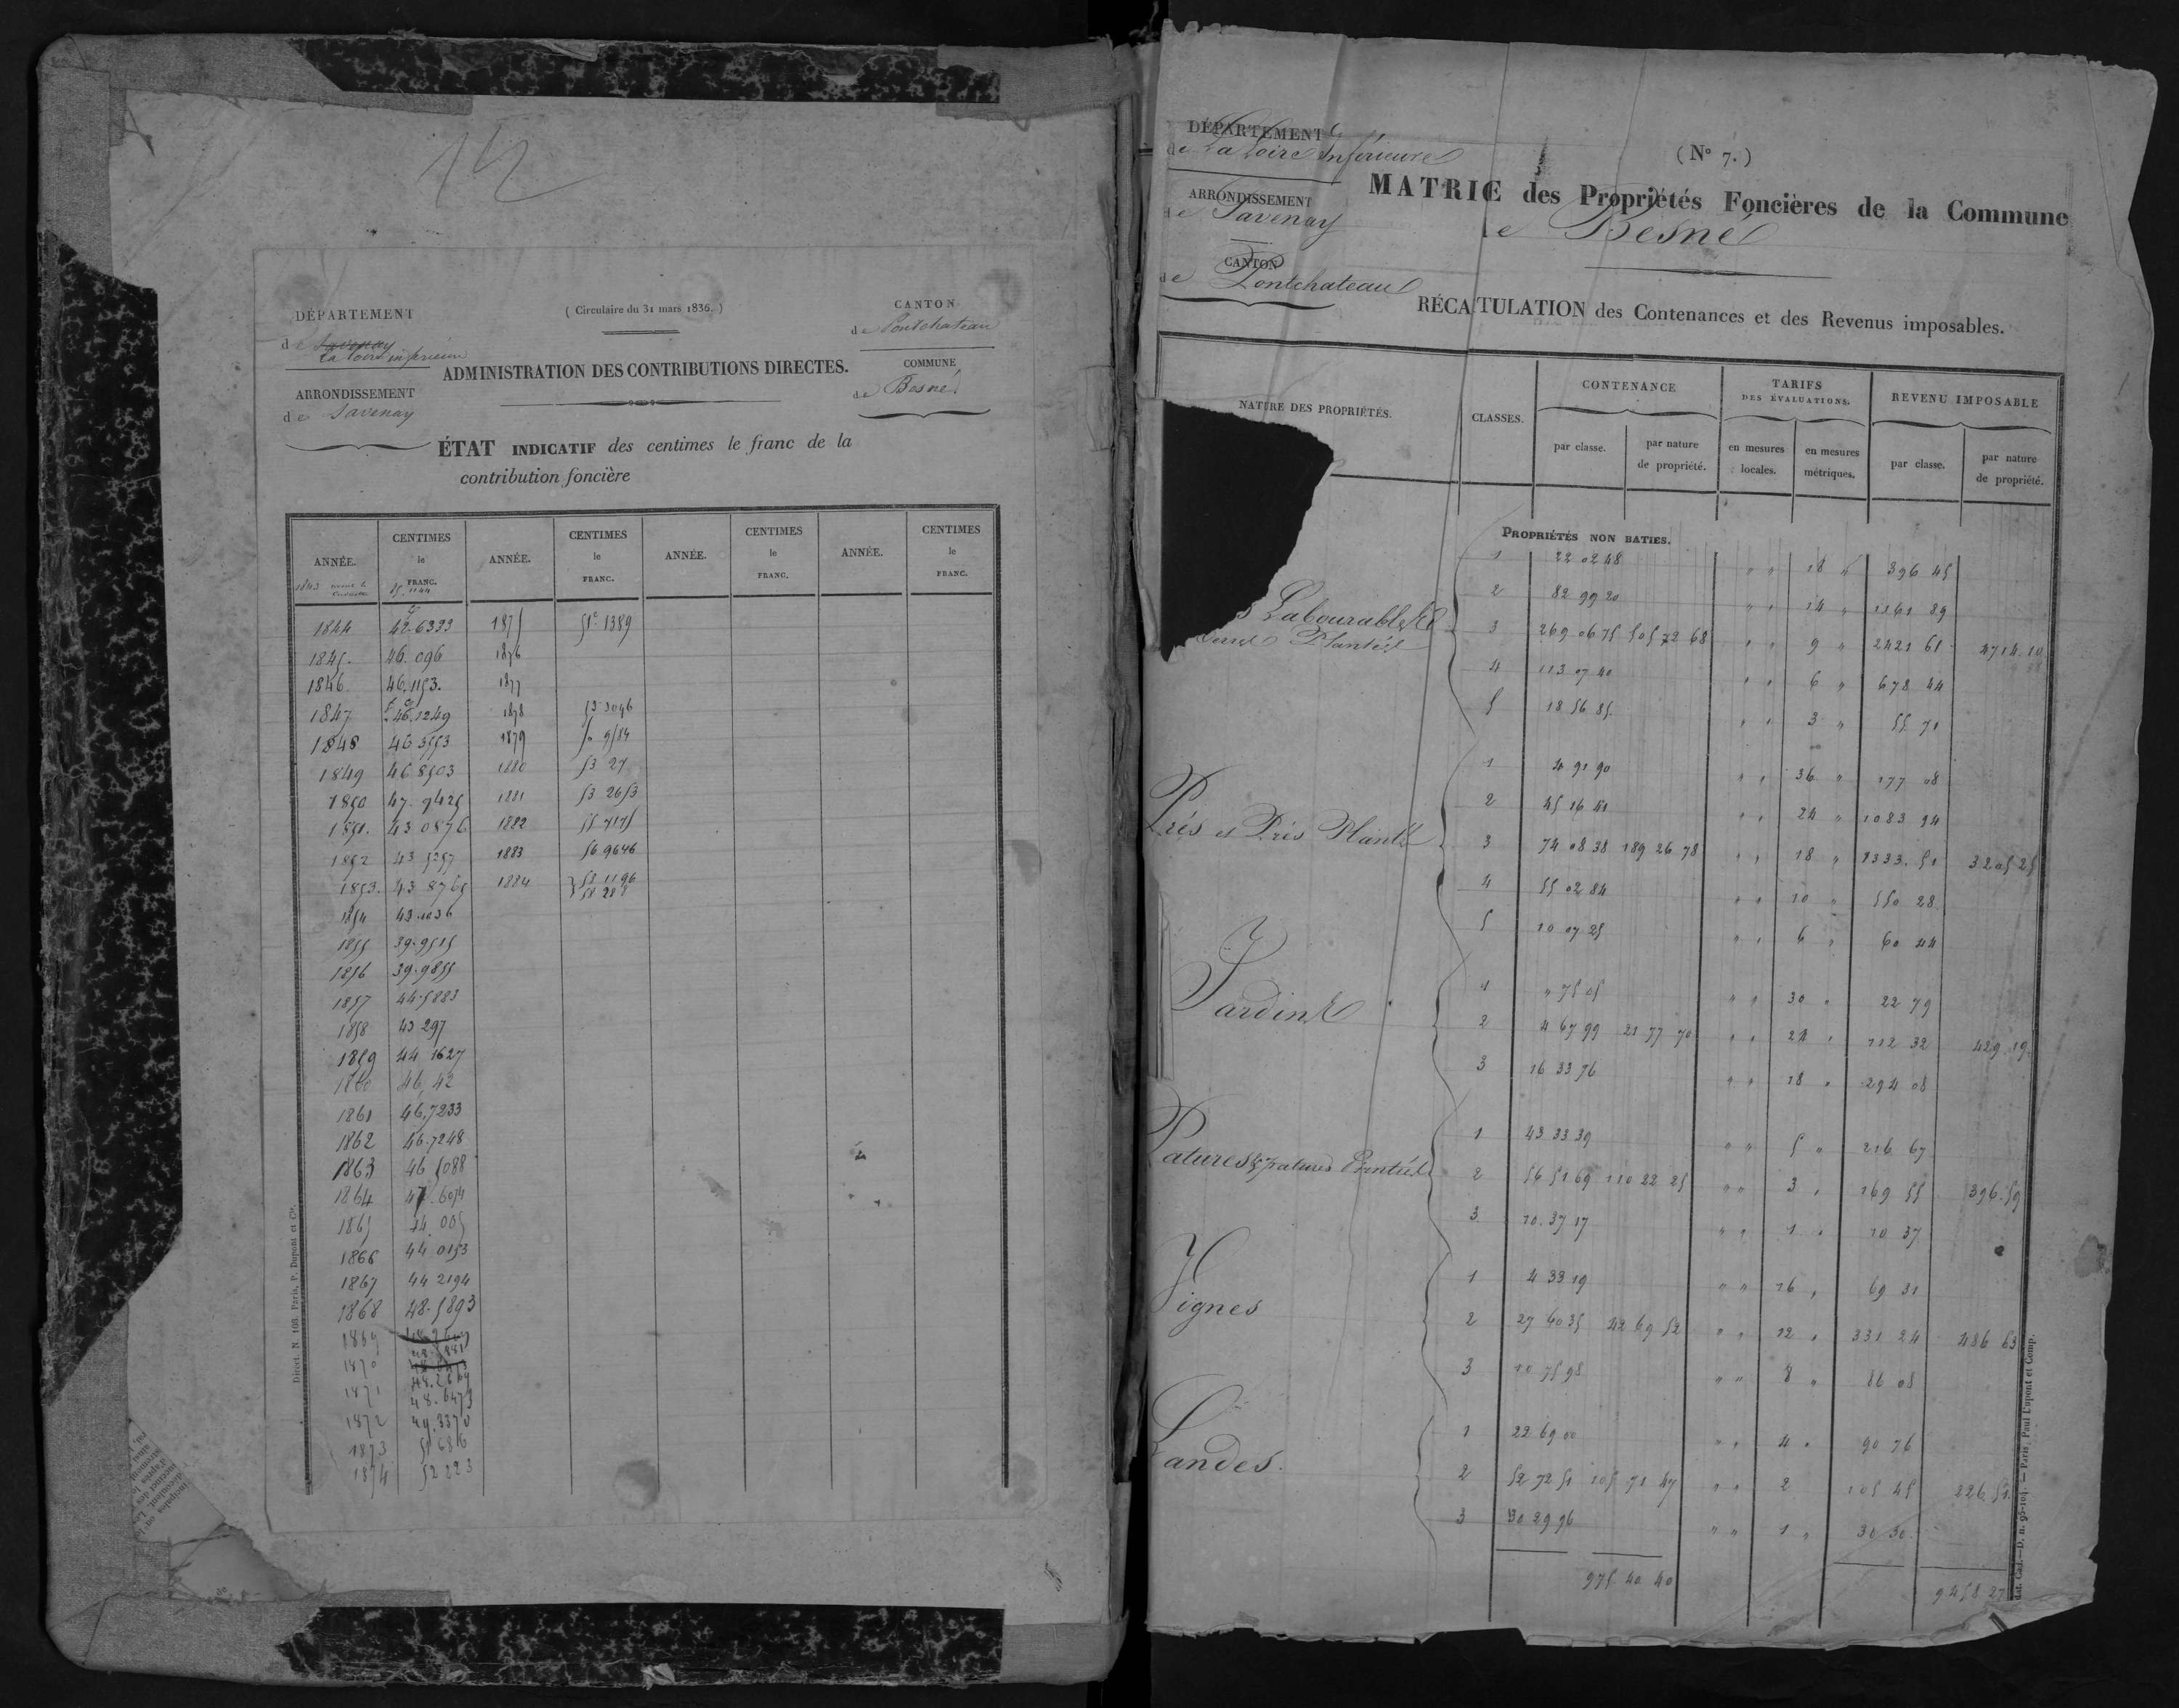 12
DÉPARTEMENT
de Savenay
La Loire inférieure
ARRONDISSEMENT
de Savenay
( Circulaire du 31 mars 1836. )
ADMINISTRATION DES CONTRIBUTIONS DIRECTES.
CANTON
de Pontchateau
COMMUNE
de Besné.
ÉTAT INDICATIF des centimes le franc de la
contribution foncière
ANNÉE. CENTIMES le FRANC. ANNÉE. CENTIMES le FRANC. ANNÉE. CENTIMES le FRANC. ANNÉE. CENTIMES le FRANC.
1843
1844 42.6333 1875 51c.1389
1845. 46.096 1876
1846. 46.1153. 1877
1847 46.1249 1878 53 3096
1848 46 3553 1879
1849 46 8503 1880 53 27
1850 47.9425 1881 53 2653
1851. 43 0876 1882 55 7175
1852 43 5257 1883 56 9646
1853. 43 8765 1884 58 1196
58 288
1854 43.1036
1855 39.9515
1856 39.9855
1857 44.5883
1858 43 297
1859 44 1627
1860 46,42
1861 46,7233
1862 46.7248
1863 46 5088
1864 47.6054
1865 44.005
1866 44 0153
1867 44 2194
1868 48.5893
1869
1870
1871 48.6473
1872 49.3370
1873 51 6816
1874 52 223
Direct. N. 108. Paris, P. Dupont et Cie.
DÉPARTEMENT
de La Loire Inférieure
ARRONDISSEMENT
de Savenay
CANTON
de Pontchateau
( N° 7. )
MATRICE des Propriétés Foncières de la Commune
de Besné
RÉCATULATION des Contenances et des Revenus imposables.
NATURE DES PROPRIÉTÉS. CLASSES. CONTENANCE TARIFS DES ÉVALUATIONS. REVENU IMPOSABLE
par classe. par nature de propriété. en mesures locales. en mesures métriques. par classe. par nature de propriété.
PROPRIÉTÉS NON BATIES.
1 22 02 48 " " 18 " 396 45
2 82 99 20 " " 14 " 1161 89
Labourables
Plantées
3 269 06 75 505 72 68 " " 9 " 2421 61 4714.10
4 113 07 40 " " 6 " 678 44
5 18 56 85. " " 3 " 55 71
1 4 91 90 " " 36 " 177 08
2 45 16 41 " " 24 " 1083 94
Prés et Prés Plantés
3 74 08 38 189 26 78 " " 18 " 1333.51 3205 25
4 55 02 84 " " 10 " 550 28
5 10 07 25 " " 6 " 60 44
Jardins
1 " 75 05 " " 30 " 22 79
2 4 67 99 21 77 70 " " 24 " 112 32 429.19.
3 16 33 76 " " 18 " 294 08
1 43 33 39 " " 5 " 216 67
Patures & patures Plantées
2 56 51 69 110 22 25 " " 3 " 169 55 396.59
3 10.37 17 " " 1 " 10 37
Vignes
1 4 33 19 " " 16 " 69 31
2 27 60 35 42 69 52 " " 12 " 331 24 486 63
3 10 75 98 " " 8 " 86 08
Landes.
1 22 69 00 " " 4 " 90 76
2 52 72 51 105 71 47 " " 2 105 45 226.51.
3 30 29 96 " " 1 " 30 30.
975 40 40 9458 27
dat. Cad.—D. n. 95-104. — Paris, Paul Dupont et Comp.